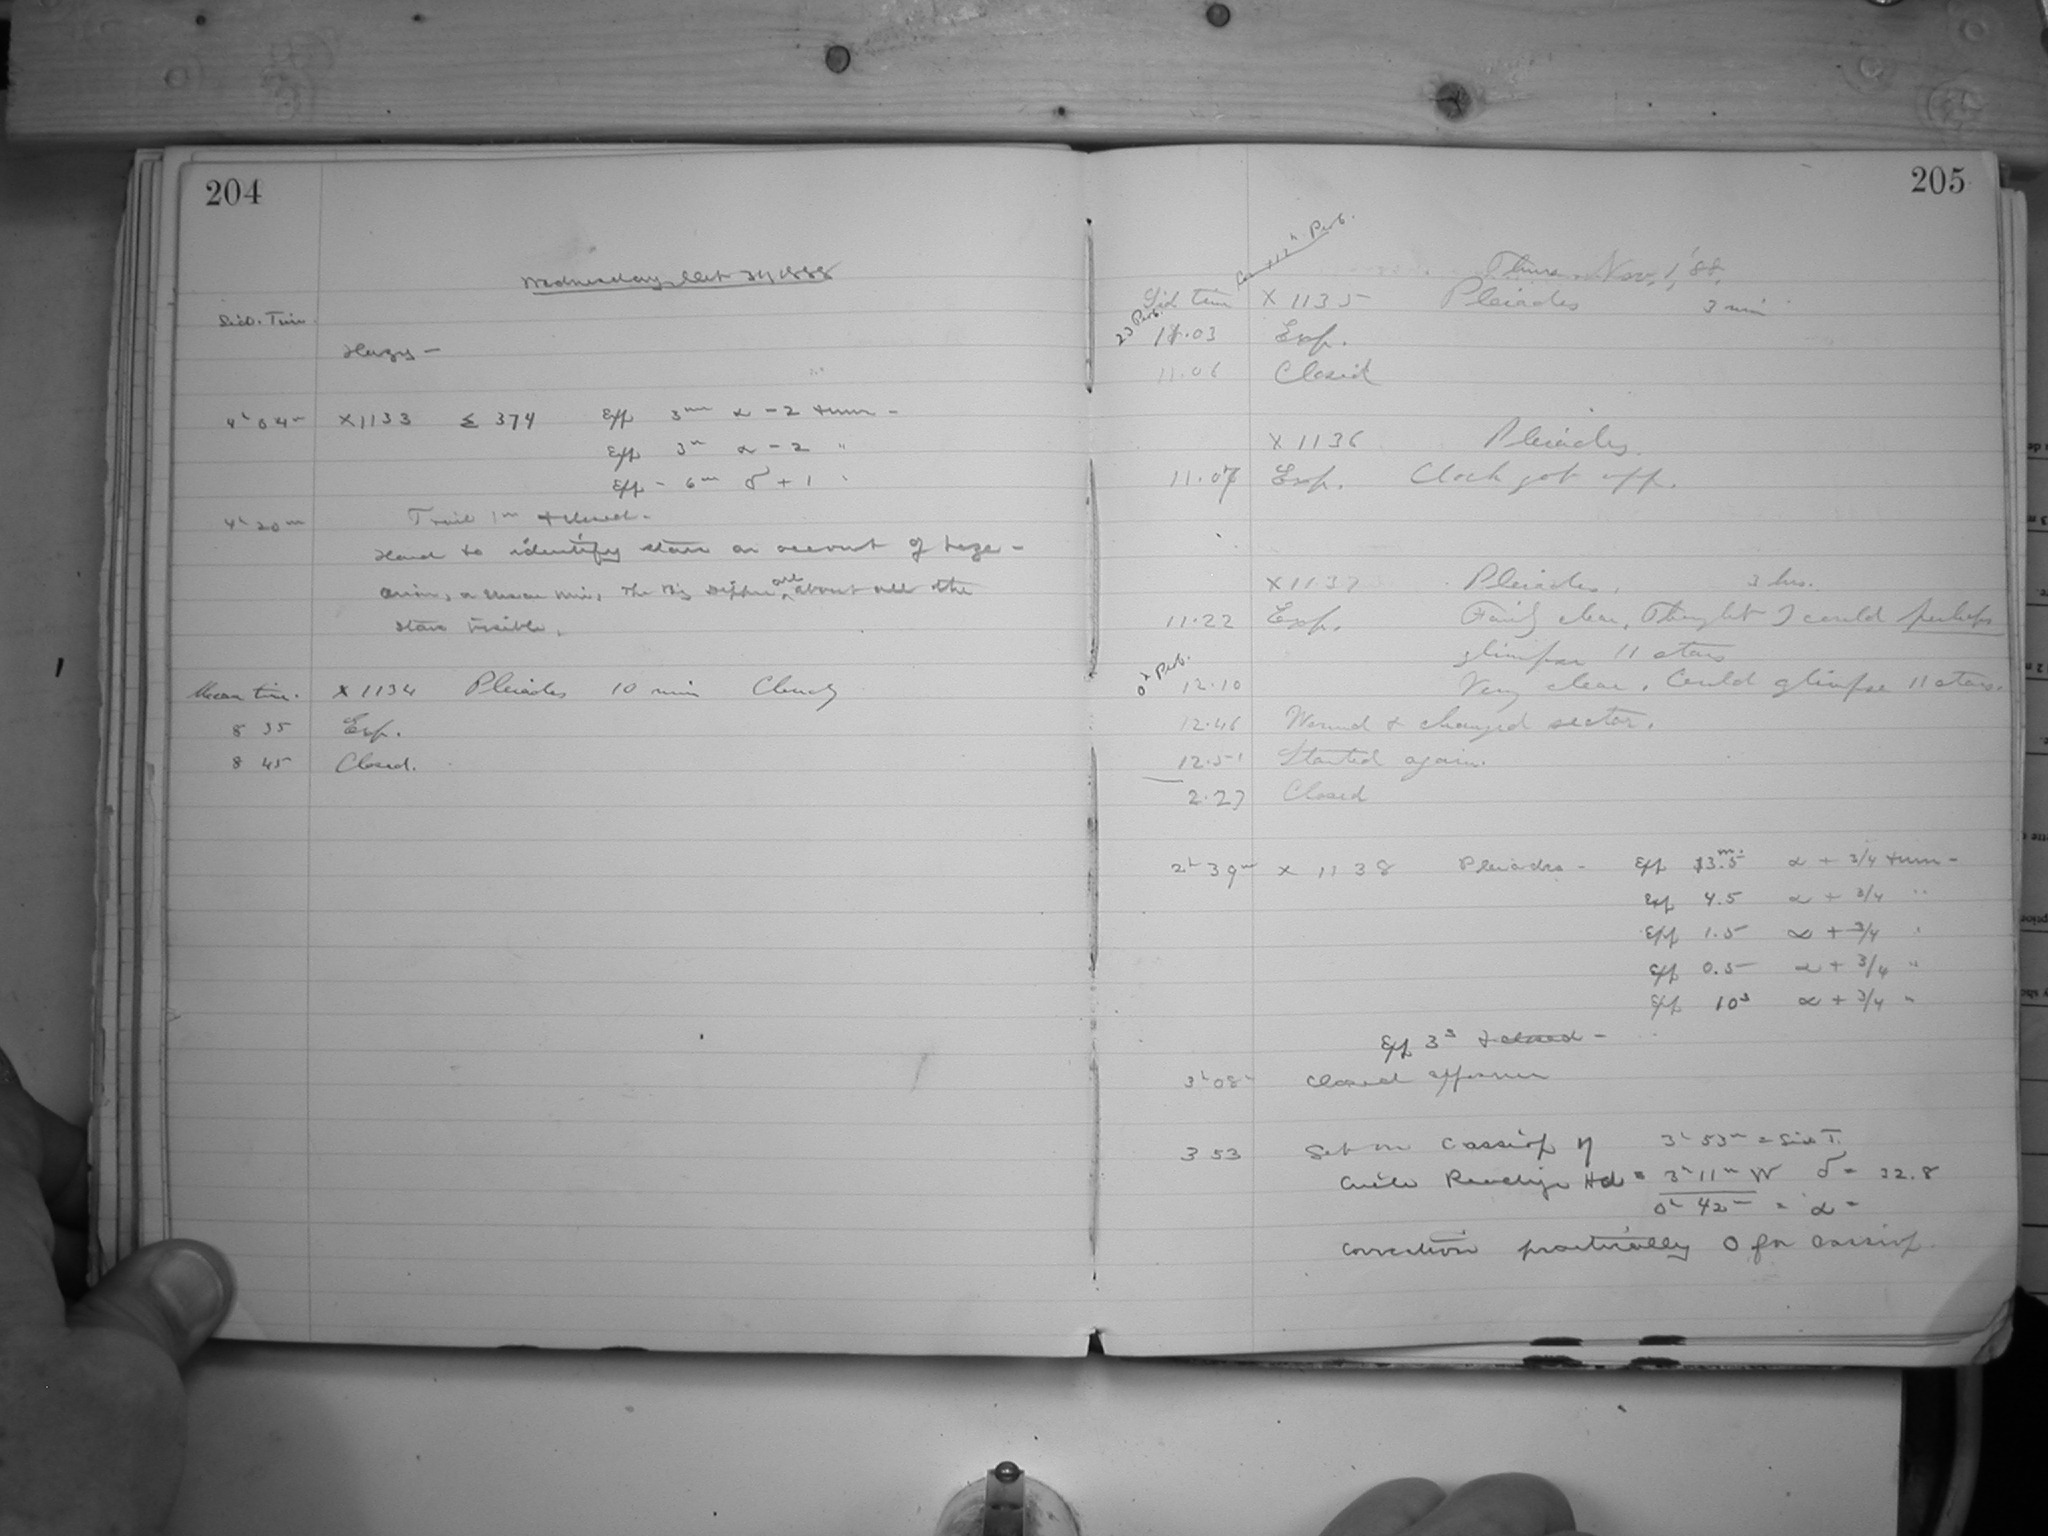 204
Wednesday, Oct 31, 1888
Sid. Time.
Hazy -
4h 04m X 1133 Σ 374 Exp 3m α - 2 turn -
Exp 3m α - 2 "
Exp - 6m δ + 1 "
4h 20m Trail 1m & closed -
Hard to identify stars on account of haze -
the Big Dipper are about all the
stars visible.
Mean time. X 1134 Pleiades 10 min Cloudy
8 35 Exp.
8 45 Closed.
205
Thurs. Nov. 1, '88.
Sid. time X 1135 Pleiades 3 min
11.03 Exp.
11.06 Closed
X 1136 Pleiades.
11.07 Exp. Clock got off.
X 1137 Pleiades. 3 hrs.
11.22 Exp. Fairly clear. Thought I could perhaps
glimpse 11 stars
12.10 Very clear. Could glimpse 11 stars.
12.46 Wound & changed sector.
12.51 Started again.
2.27 Closed
2h 39m X 1138 Pleiades - Exp 3.5m. α + 3/4 turn -
Exp 4.5 α + 3/4 "
Exp 1.5 α + 3/4 "
Exp 0.5 α + 3/4 "
Exp 10s α + 3/4 "
Exp 3s & closed -
3h 08m Closed
3 53 Set on Cassiop η 3h 53m = Sid T.
Circle Reading Hd = 3h 11m W δ = 32.8
0h 42m = α =
Correction practically 0 for Cassiop.